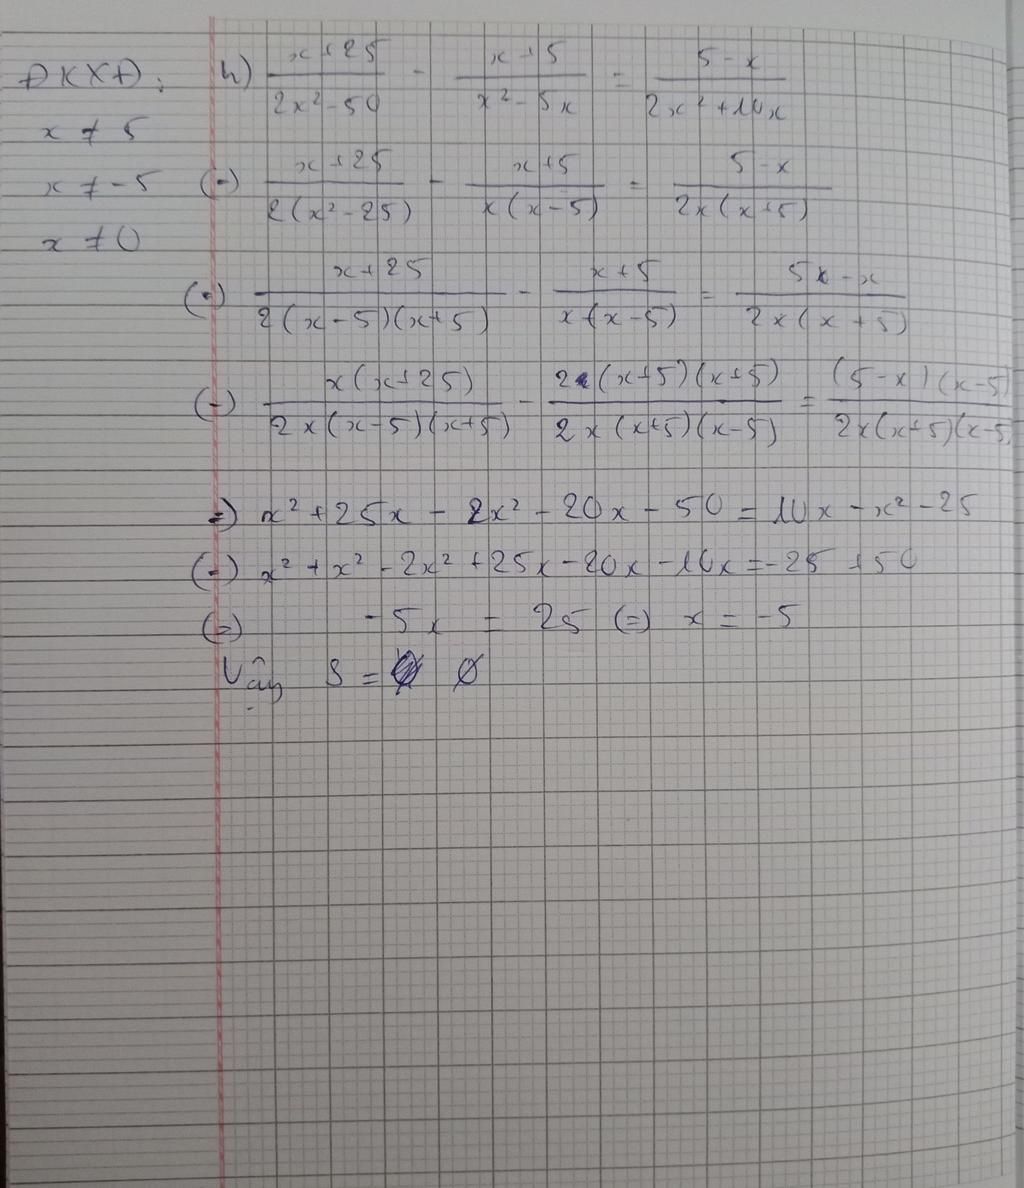 ĐKXĐ:
x ≠ 5
x ≠ -5
x ≠ 0
h) (x+25)/(2x²-50) - (x+5)/(x²-5x) = (5-x)/(2x²+10x)
(=) (x+25)/(2(x²-25)) - (x+5)/(x(x-5)) = (5-x)/(2x(x+5))
(=) (x+25)/(2(x-5)(x+5)) - (x+5)/(x(x-5)) = (5x-x)/(2x(x+5))
(=) x(x+25)/(2x(x-5)(x+5)) - 2(x+5)(x+5)/(2x(x+5)(x-5)) = (5-x)(x-5)/(2x(x+5)(x-5)
=) x² + 25x - 2x² - 20x - 50 = 10x - x² - 25
(=) x² + x² - 2x² + 25x - 20x - 10x = -25 + 50
(=) -5x = 25 (=) x = -5
Vậy S = ∅